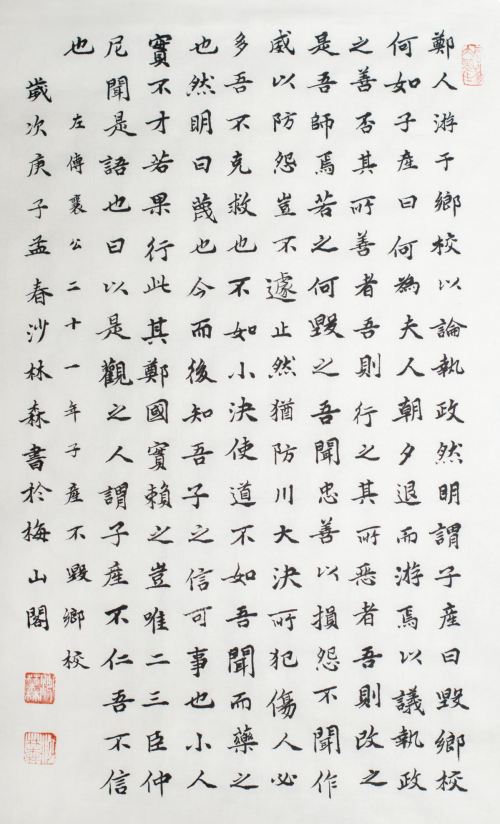 鄭人游于鄉校以論執政然明謂子產曰毀鄉校
何如子產曰何為夫人朝夕退而游焉以議執政
之善否其所善者吾則行之其所惡者吾則改之
是吾師焉若之何毀之吾聞忠善以損怨不聞作
威以防怨豈不遽止然猶防川大決所犯傷人必
多吾不克救也不如小決使道不如吾聞而藥之
也然明曰蔑也今而後知吾子之信可事也小人
實不才若果行此其鄭國實賴之豈唯二三臣仲
尼聞是語也曰以是觀之人謂子產不仁吾不信
也 左傳襄公二十一年子產不毀鄉校
歲次庚子孟春沙林森書於梅山閣